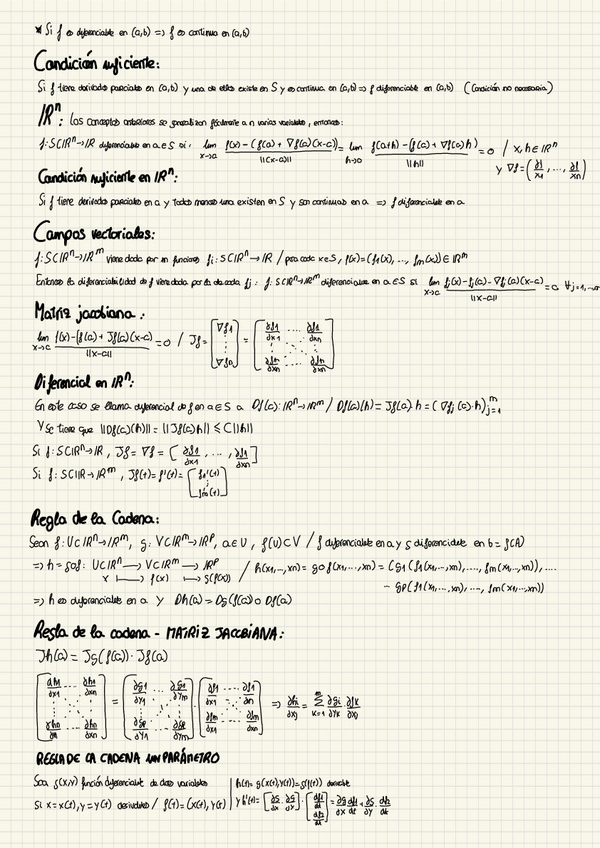 * Si f es diferenciable en (a,b) => f es continua en (a,b)
Condición suficiente:
Si f tiene derivadas parciales en (a,b) y una de ellas existe en S y es continua en (a,b) => f diferenciable en (a,b) (Condición no necesaria)
IRⁿ: Los conceptos anteriores se generalizan fácilmente a n varias variables, entonces:
f: S⊂IRⁿ→IR diferenciable en a∈S si: lim x→a (f(x) - (f(a) + ∇f(a)(x-a))) / ||(x-a)|| = lim h→0 (f(a+h) - (f(a) + ∇f(a)h)) / ||h|| = 0 / x,h∈IRⁿ
y ∇f = (∂f/x1, ..., ∂f/xn)
Condición suficiente en IRⁿ:
Si f tiene derivadas parciales en a y todas menos una existen en S y son continuas en a => f diferenciable en a
Campos vectoriales:
f: S⊂IRⁿ→IRᵐ viene dada por m funciones fi: S⊂IRⁿ→IR / para cada x∈S, f(x) = (f1(x), ..., fm(x)) ∈ IRᵐ
Entonces la diferenciabilidad de f viene dada por la de cada fj: f: S⊂IRⁿ→IRᵐ diferenciable en a∈S si lim x→a (fj(x) - fj(a) - ∇fj(a)(x-a)) / ||x-a|| = 0 ∀j=1,...,m
Matriz jacobiana:
lim x→a (f(x) - (f(a) + Jf(a)(x-a))) / ||x-a|| = 0 / Jf = [∇f1 ⋮ ∇fn] = [∂f1/∂x1 .... ∂f1/∂xn ; ∂fm/∂x1 ... ∂fm/∂xn]
Diferencial en IRⁿ:
En este caso se llama diferencial de f en a∈S a Df(a): IRⁿ→IRᵐ / Df(a)(h) = Jf(a)·h = (∇fj(a)·h)ᵐj=1
Y se tiene que ||Df(a)(h)|| = ||Jf(a)h|| ≤ C||h||
Si f: S⊂IRⁿ→IR, Jf = ∇f = [∂f/∂x1, ..., ∂f/∂xn]
Si f: S⊂IR→IRᵐ, Jf(t) = f'(t) = [f1'(t) ⋮ fm'(t)]
Regla de la Cadena:
Sean f: U⊂IRⁿ→IRᵐ, g: V⊂IRᵐ→IRᵖ, a∈U, f(U)⊂V / f diferenciable en a y g diferenciable en b=f(A)
=> h = gof: U⊂IRⁿ → V⊂IRᵐ → IRᵖ / h(x1,..,xn) = gof(x1,...,xn) = (g1(f1(x1,...,xn), ...., fm(x1,...,xn)), ....
x ↦ f(x) ↦ g(f(x))
... gp(f1(x1,...,xn), ..., fm(x1,...,xn))
=> h es diferenciable en a y Dh(a) = Dg(f(a)) o Df(a)
Regla de la cadena - MATRIZ JACOBIANA:
Jh(a) = Jg(f(a)) · Jf(a)
[∂h1/∂x1 ... ∂h1/∂xn ; ... ∂hn/∂xn] = [∂g1/∂y1 ... ∂g1/∂ym ; ∂gp/∂y1 ... ∂gp/∂ym] · [∂f1/∂x1 .... ∂f1/∂n ; ∂fm/∂x1 ... ∂fm/∂xn] => ∂hi/∂xj = Σ k=1 m ∂gi/∂yk ∂fk/∂xj
REGLA DE LA CADENA UN PARÁMETRO
Sea g(x,y) función diferenciable de dos variables | h(t) = g(x(t),y(t)) = g(f(t)) derivable
Si x=x(t), y=y(t) derivables / f(t) = (x(t),y(t)) | y h'(t) = [∂g/∂x ∂g/∂y] · [df1/dt ; df2/dt] = ∂g/∂x df1/dt + ∂g/∂y df2/dt